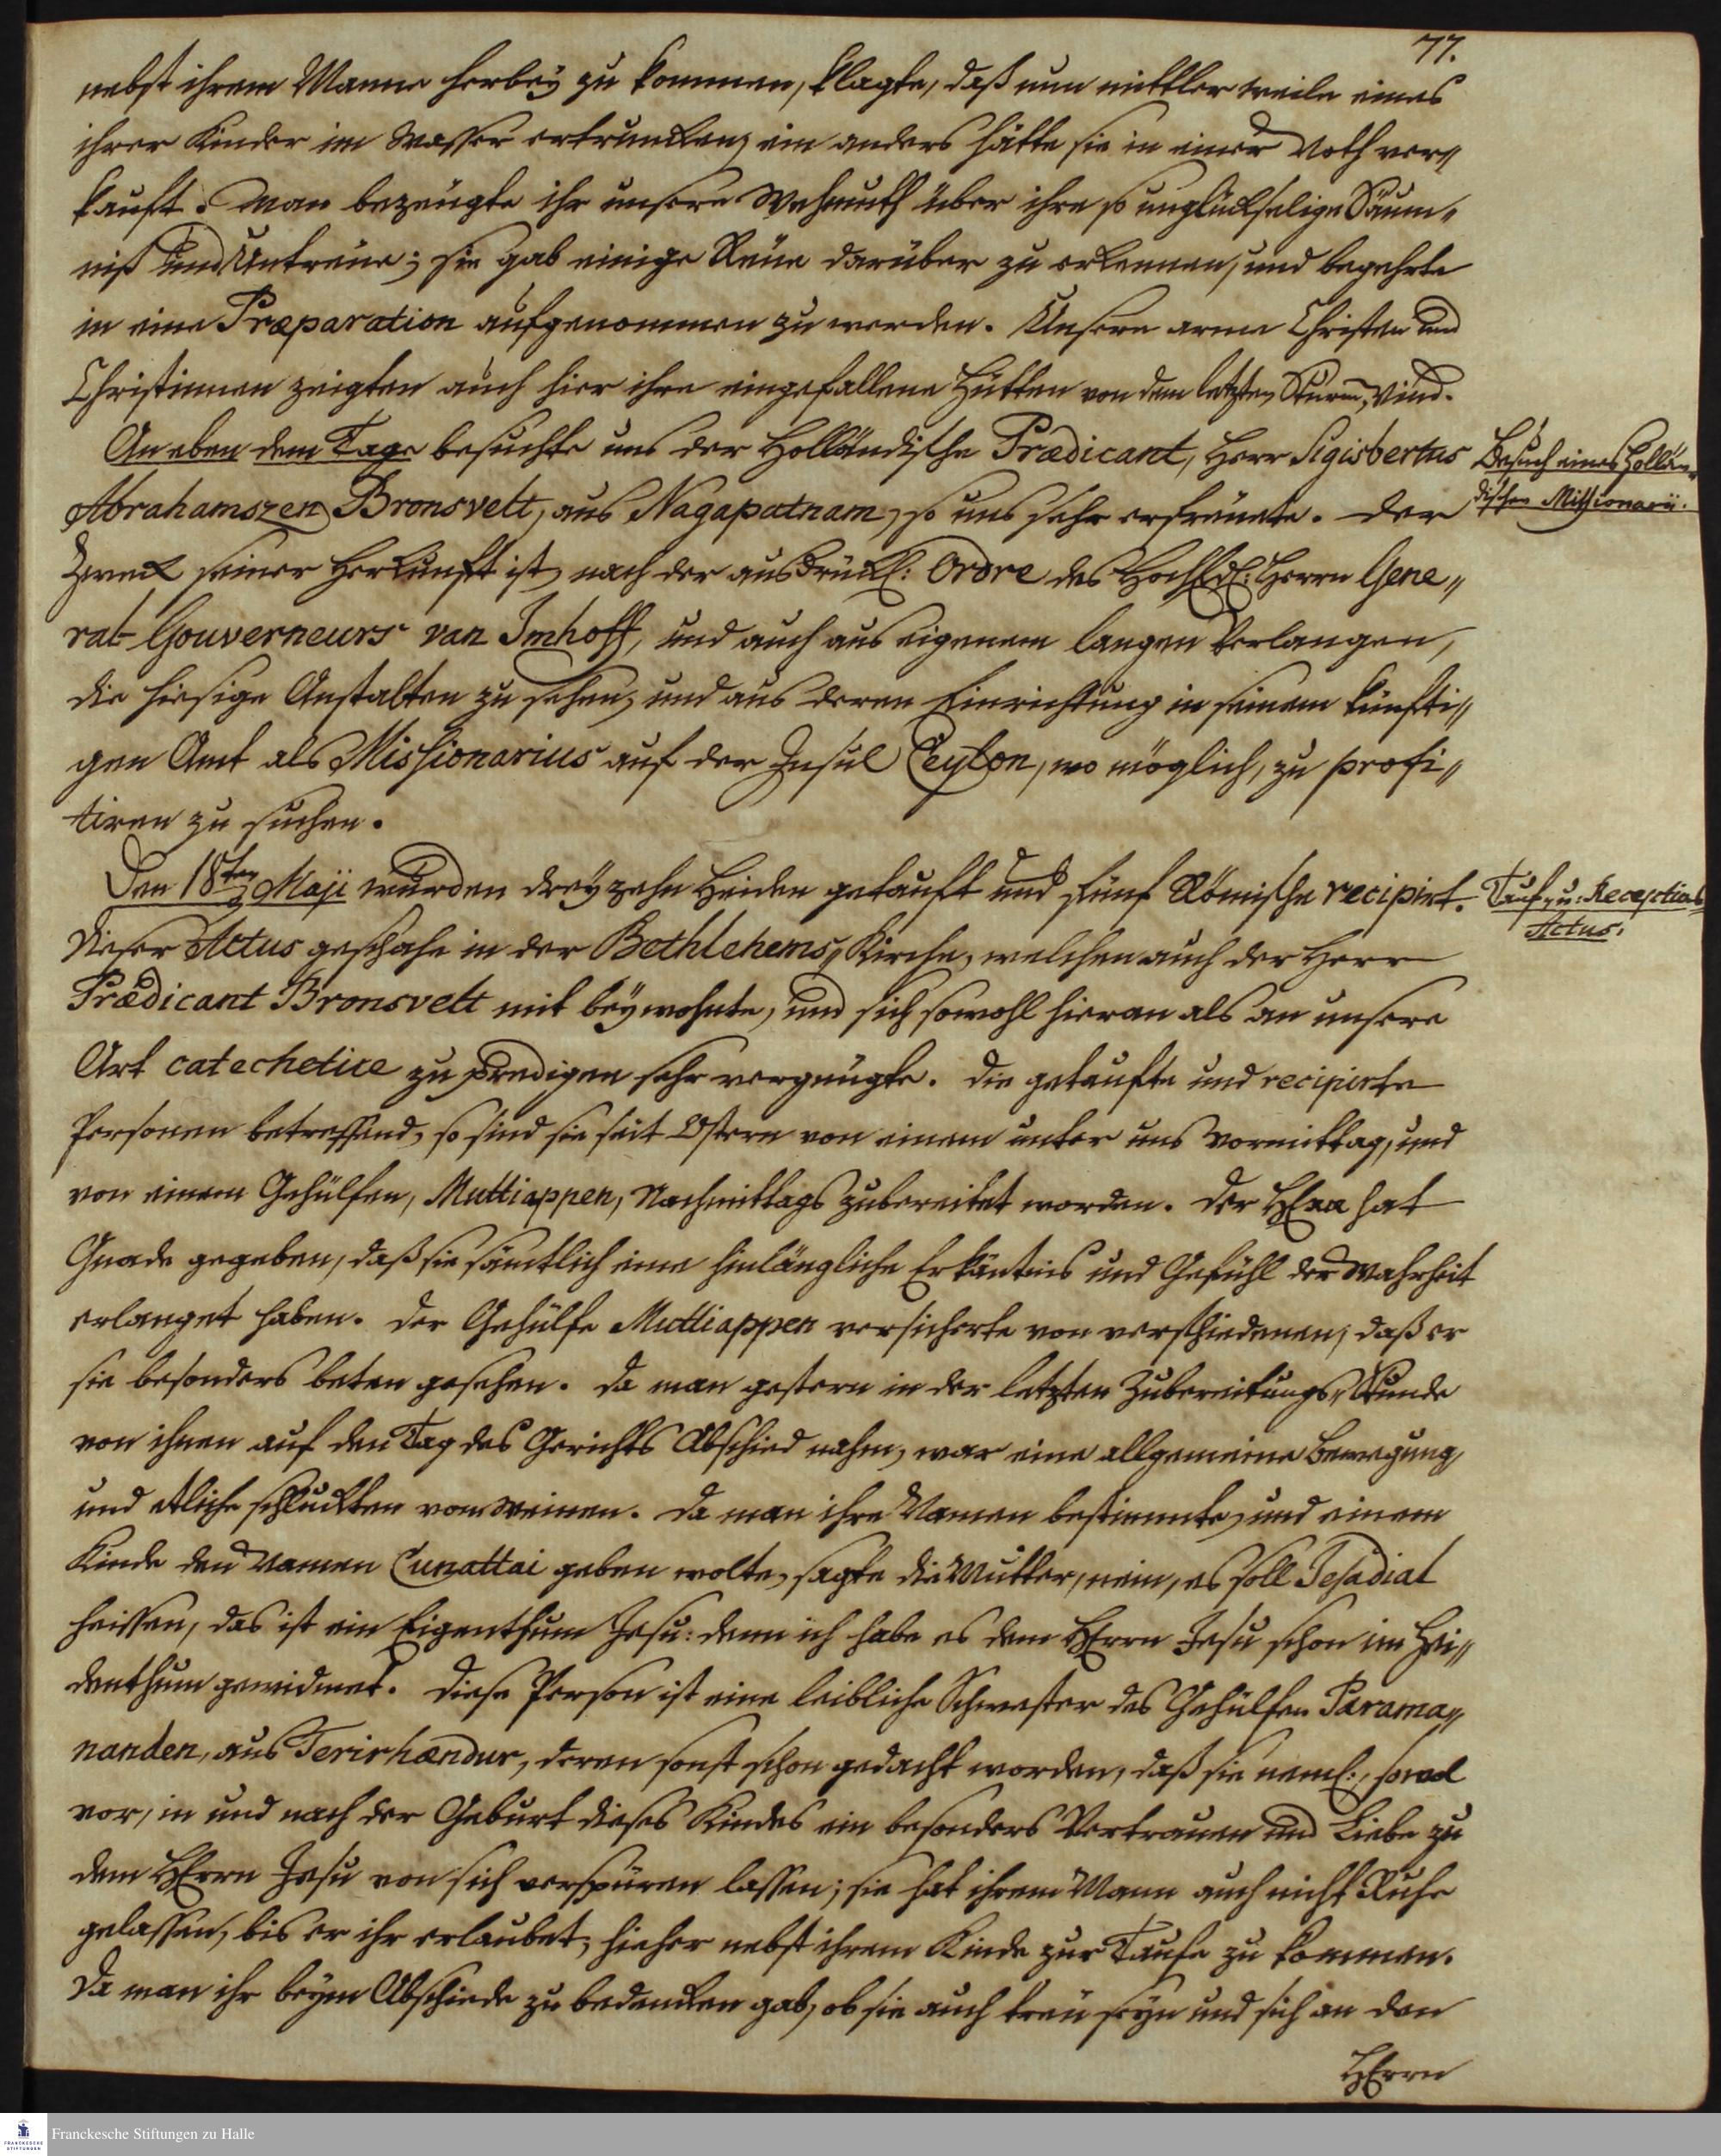 77.
nebst ihrem Manne herbeÿ zu kommen, klagte, daß nun mittler weile eines
ihrer Kinder im Wasser ertruncken, ein anders hätte sie in einer Noth ver„
kauft. Man bezeugte ihr unsere Wehmuth über ihre so unglückselige Säum„
niß und Untreue; sie gab einige Reue darüber zu erkennen, und begehrte
in eine Præparation aufgenommen zu werden. Unsere arme Christen und
Christinnen zeigten auch hier ihre eingefallene Hütten von dem letzten Sturm„Wind.
An eben dem Tage besuchte uns der Holländische Prædicant, Herr Sigisbertus
Abrahamszen Bronsvelt, aus Nagapatnam, so uns sehr erfreuete. Der
Besuch eines Hollän„
dischen Missionarii.
Zweck seiner Herkunft ist, nach der ausdrückl: Ordre des HochEdl: Herrn Gene„
ral-Gouverneurs van Imhoff, und auch aus eigenem langen Verlangen,
die hiesige Anstalten zu sehen, und aus deren Einrichtung in seinem künfti„
gen Amt als Missionarius auf der Insul Ceylon, wo möglich, zu profi„
tiren zu suchen.
Den 18ten Maji wurden dreÿzehn Heiden getauft und fünf Römische recipirt.
Tauf- u: Receptions
Actus.
Dieser Actus geschahe in der Bethlehems„Kirche, welchen auch der Herr
Prædicant Bronsvelt mit beÿwohnte, und sich sowohl hieran als an unsere
Art catechetice zu predigen sehr vergnügte. Die getaufte und recipirte
Personen betreffend, so sind sie seit Ostern von einem unter uns Vormittag, und
von einem Gehülfen, Muttiappen, Nachmittags zubereitet worden. Der HErr hat
Gnade gegeben, daß sie sämtlich eine hinlängliche Erkäntnis und Gefühl der Wahrheit
erlanget haben. Der Gehülfe Muttiappen versicherte von verschiedenen, daß er
sie besonders beten gesehen. Da man gestern in der letzten Zubereitungs„Stunde
von ihnen auf den Tag des Gerichts Abschied nahm, war eine allgemeine Bewegung,
und etliche schluckten vom Weinen. Da man ihre Namen bestimmte, und einem
Kinde den Namen Cunattai geben wolte, sagte die Mutter, nein, es soll Jesadial
heissen, das ist ein Eigenthum Jesu: denn ich habe es dem HErrn Jesu schon im Hei„
denthum gewidmet. Diese Person ist eine leibliche Schwester des Gehülfen Parama„
nanden, aus Terirhændur, deren sonst schon gedacht worden, daß sie neml:, sowol
vor, in und nach der Geburt dieses Kindes ein besonders Vertrauen und Liebe zu
dem HErrn Jesu von sich verspüren lassen; sie hat ihrem Mann auch nicht Ruhe
gelassen, bis er ihr erlaubet, hieher nebst ihrem Kinde zur Taufe zu kommen.
Da man ihr beÿm Abschiede zu bedencken gab, ob sie auch treu seÿn und sich an den
HErrn
FRANCKESCHE STIFTUNGEN
Franckesche Stiftungen zu Halle